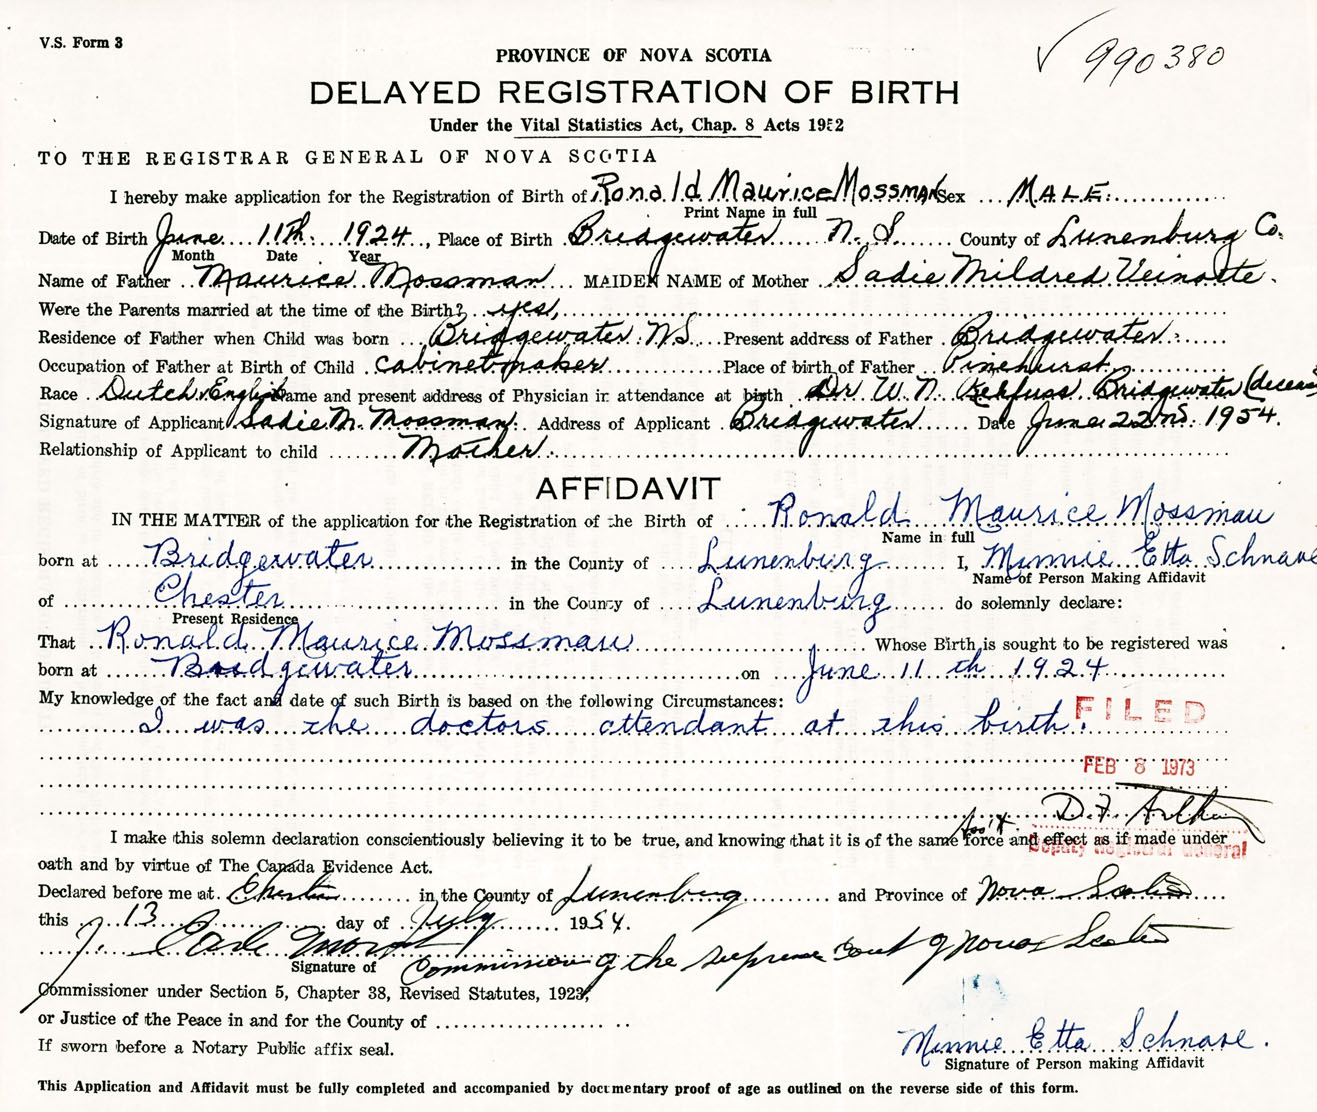 V.S. Form 3
990380
PROVINCE OF NOVA SCOTIA
DELAYED REGISTRATION OF BIRTH
Under the Vital Statistics Act, Chap. 8 Acts 1952
TO THE REGISTRAR GENERAL OF NOVA SCOTIA
I hereby make application for the Registration of Birth of Ronald Maurice Mossman Sex MALE
Print Name in full
Date of Birth June 11th 1924, Place of Birth Bridgewater N.S. County of Lunenburg Co.
Month Date Year
Name of Father Maurice Mossman MAIDEN NAME of Mother Sadie Mildred Veinotte.
Were the Parents married at the time of the Birth? yes,
Residence of Father when Child was born Bridgewater N.S. Present address of Father Bridgewater
Occupation of Father at Birth of Child cabinetmaker Place of birth of Father Pinehurst.
Race Dutch, English Name and present address of Physician in attendance at birth Dr W. N. Rehfuss Bridgewater (deceas
Signature of Applicant Sadie M. Mossman. Address of Applicant Bridgewater Date June 22nd. 1954.
Relationship of Applicant to child Mother
AFFIDAVIT
IN THE MATTER of the application for the Registration of the Birth of Ronald Maurice Mossman
Name in full
born at Bridgewater in the County of Lunenburg I, Minnie Etta Schnare
Name of Person Making Affidavit
of Chester in the County of Lunenburg do solemnly declare:
Present Residence
That Ronald Maurice Mossman Whose Birth is sought to be registered was
born at Bridgewater on June 11th 1924
My knowledge of the fact and date of such Birth is based on the following Circumstances:
I was the doctors attendant at this birth.
FILED
FEB 8 1973
D.F.
Ass't.
Deputy Registrar General
I make this solemn declaration conscientiously believing it to be true, and knowing that it is of the same force and effect as if made under
oath and by virtue of The Canada Evidence Act.
Declared before me at Chester in the County of Lunenburg and Province of Nova Scotia
this 13 day of July 1954.
J. Earle
Signature of Commissioner of the supreme Court of Nova Scotia
Commissioner under Section 5, Chapter 38, Revised Statutes, 1923,
or Justice of the Peace in and for the County of
If sworn before a Notary Public affix seal.
Minnie Etta Schnare.
Signature of Person making Affidavit
This Application and Affidavit must be fully completed and accompanied by documentary proof of age as outlined on the reverse side of this form.